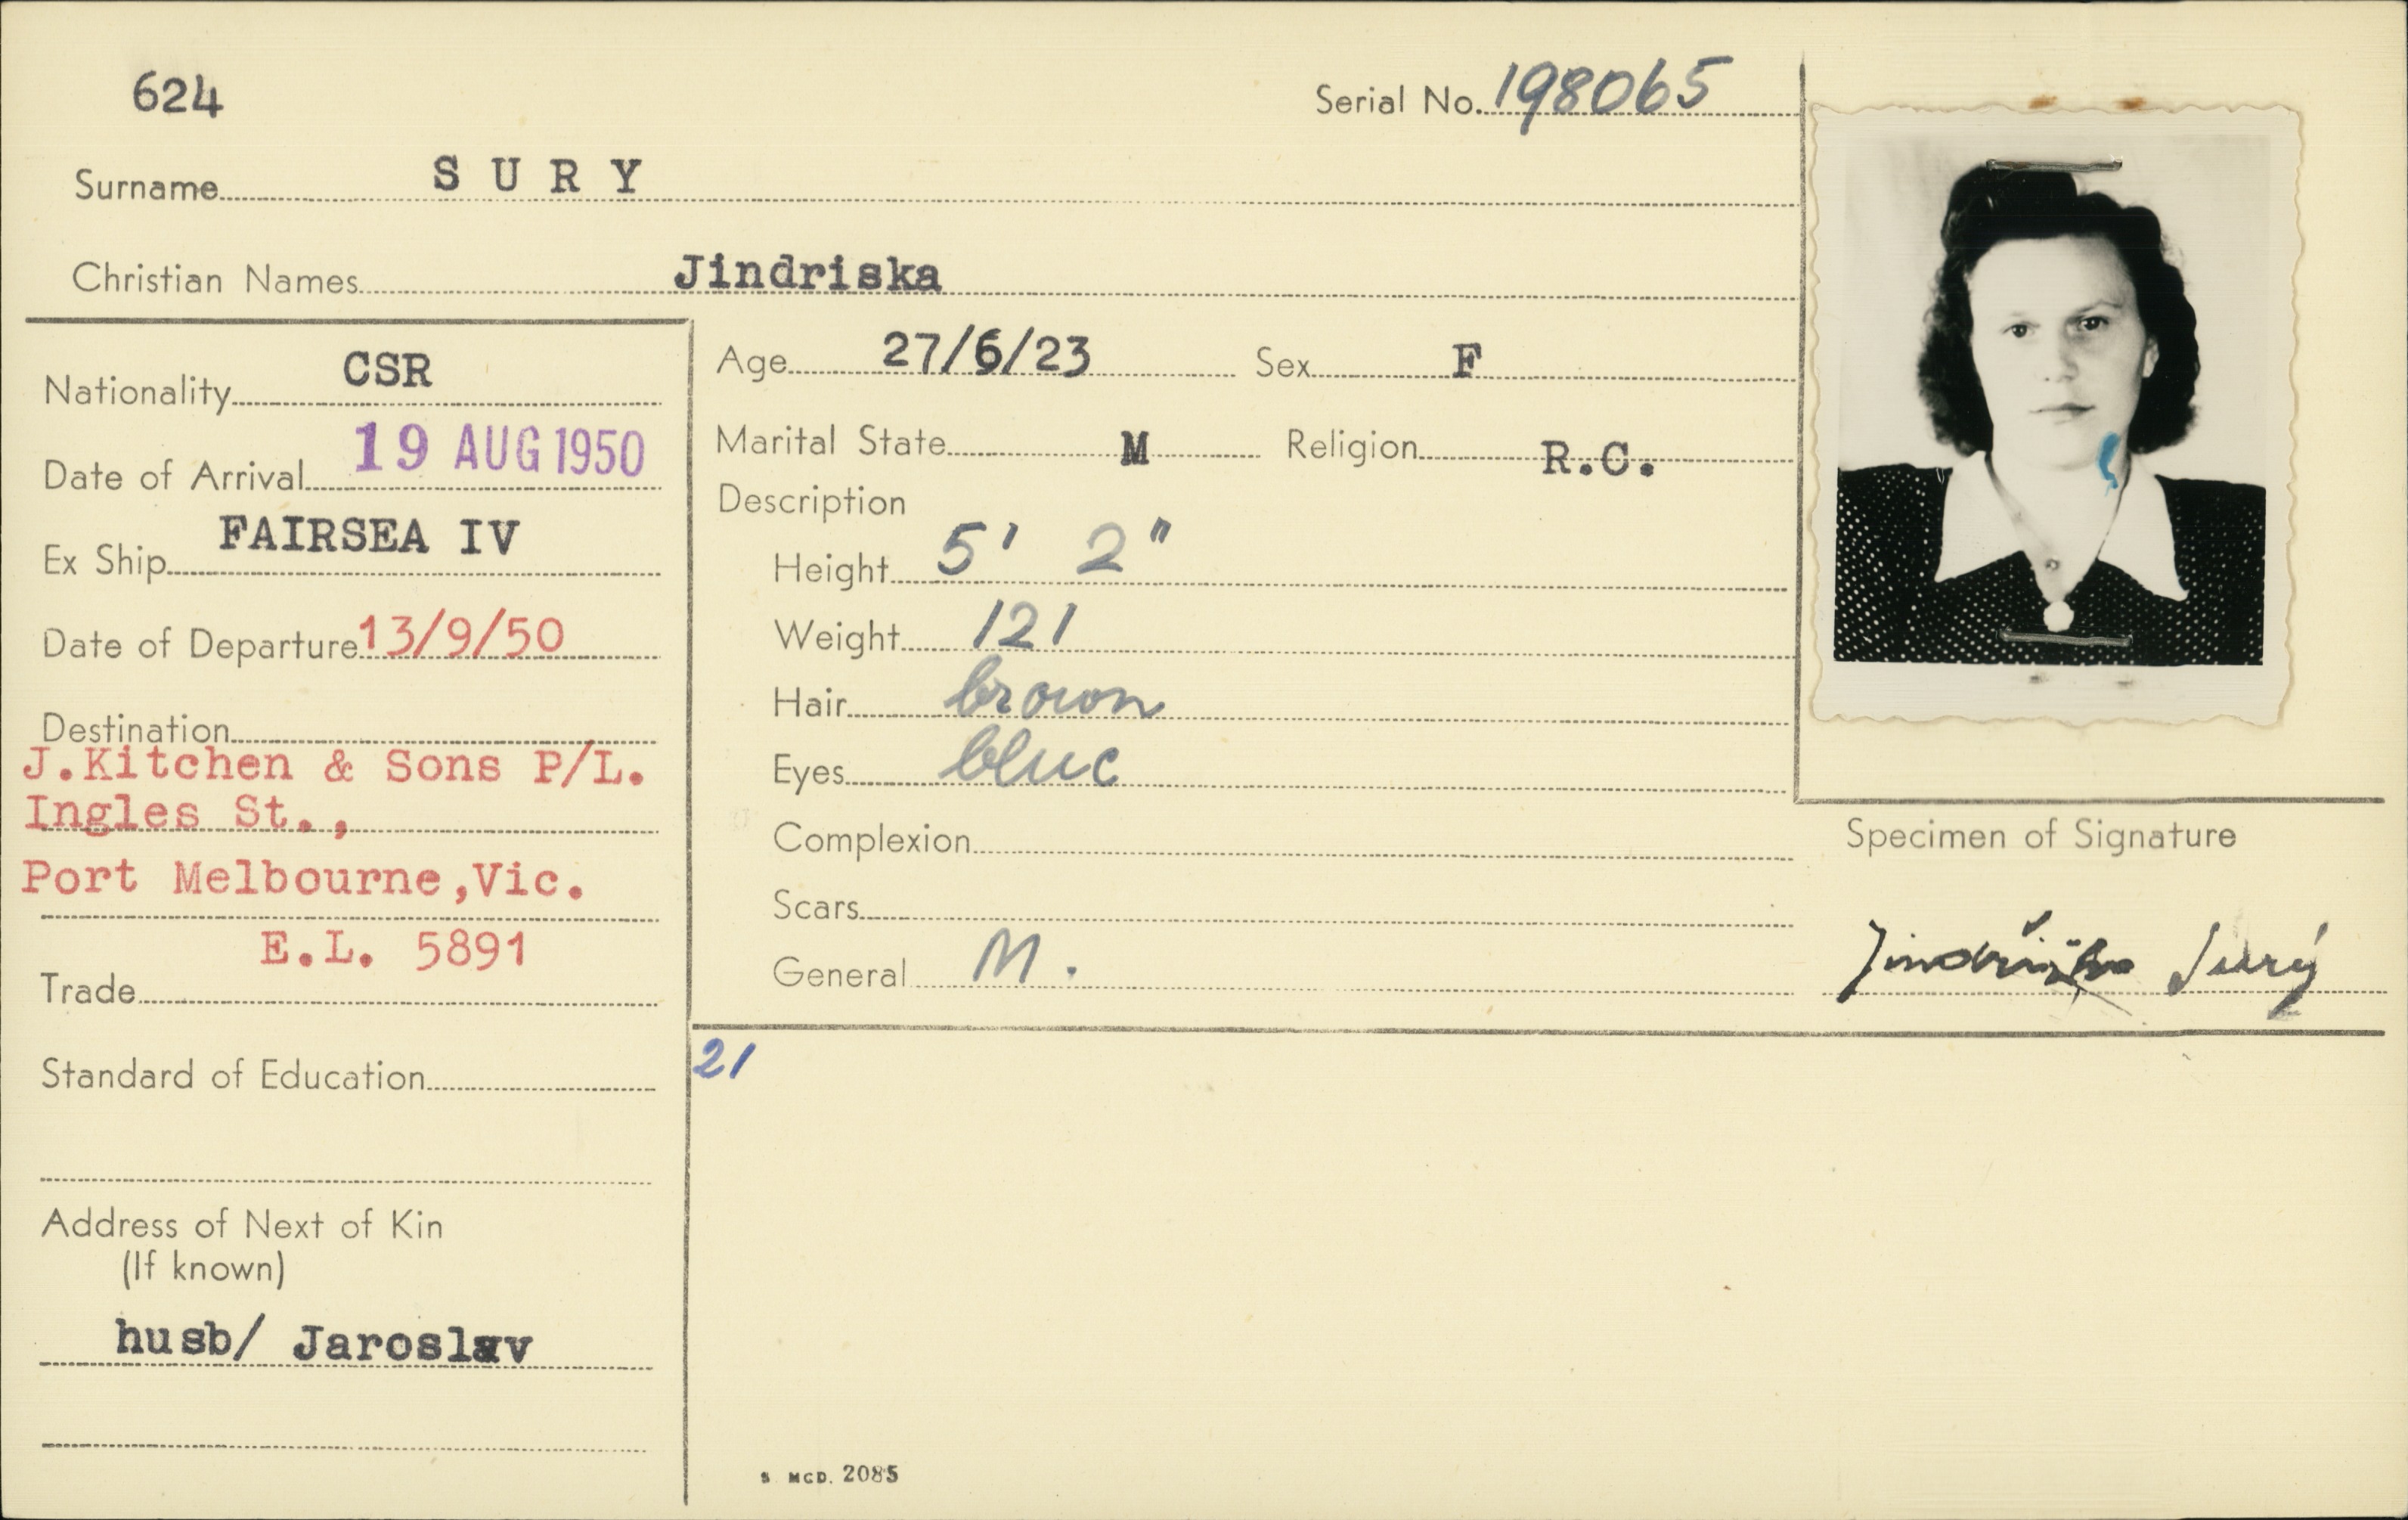 624
Serial No. 198065
Surname SURY
Christian Names Jindriska
Nationality CSR
Date of Arrival 19 AUG 1950
Ex Ship FAIRSEA IV
Date of Departure 13/9/50
Destination
J.Kitchen & Sons P/L.
Ingles St.,
Port Melbourne,Vic.
E.L. 5891
Trade
Standard of Education
Address of Next of Kin
(If known)
husb/ Jaroslav
Age 27/6/23 Sex F
Marital State M Religion R.C.
Description
Height 5' 2"
Weight 121
Hair brown
Eyes blue
Complexion
Scars
General M.
Specimen of Signature
Jindřiška Surý
21
S MCD. 2085